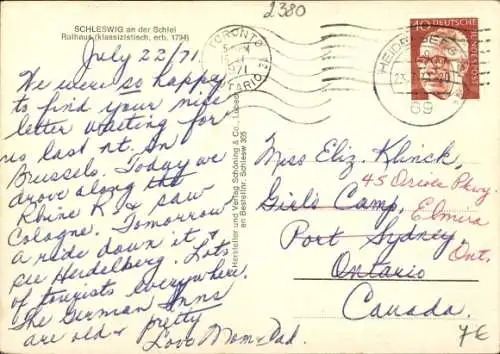 2380
SCHLESWIG an der Schlei
Rathaus (klassizistisch, erb. 1794)
July 22/71
We were so happy
to find your nice
letter waiting for
us last nt. in
Brussels. Today we
drove along the
Rhine R. & saw
Cologne. Tomorrow
a ride down it &
see Heidelberg. Lots
of tourists everywhere.
The German Inns
are old & pretty
Love Mom & Dad.
Hersteller und Verlag Schöning & Co., Lübeck
an Bestellnr. Schlesw 305
TORONTO
1971
ONTARIO
HEIDELBERG
69
40 DEUTSCHE
BUNDESPOST
Miss Eliz. Klinck,
Girl's Camp,
45 Oriole Pkwy.
Elmira
Port Sydney,
Ont.
Ontario
Canada.
7€